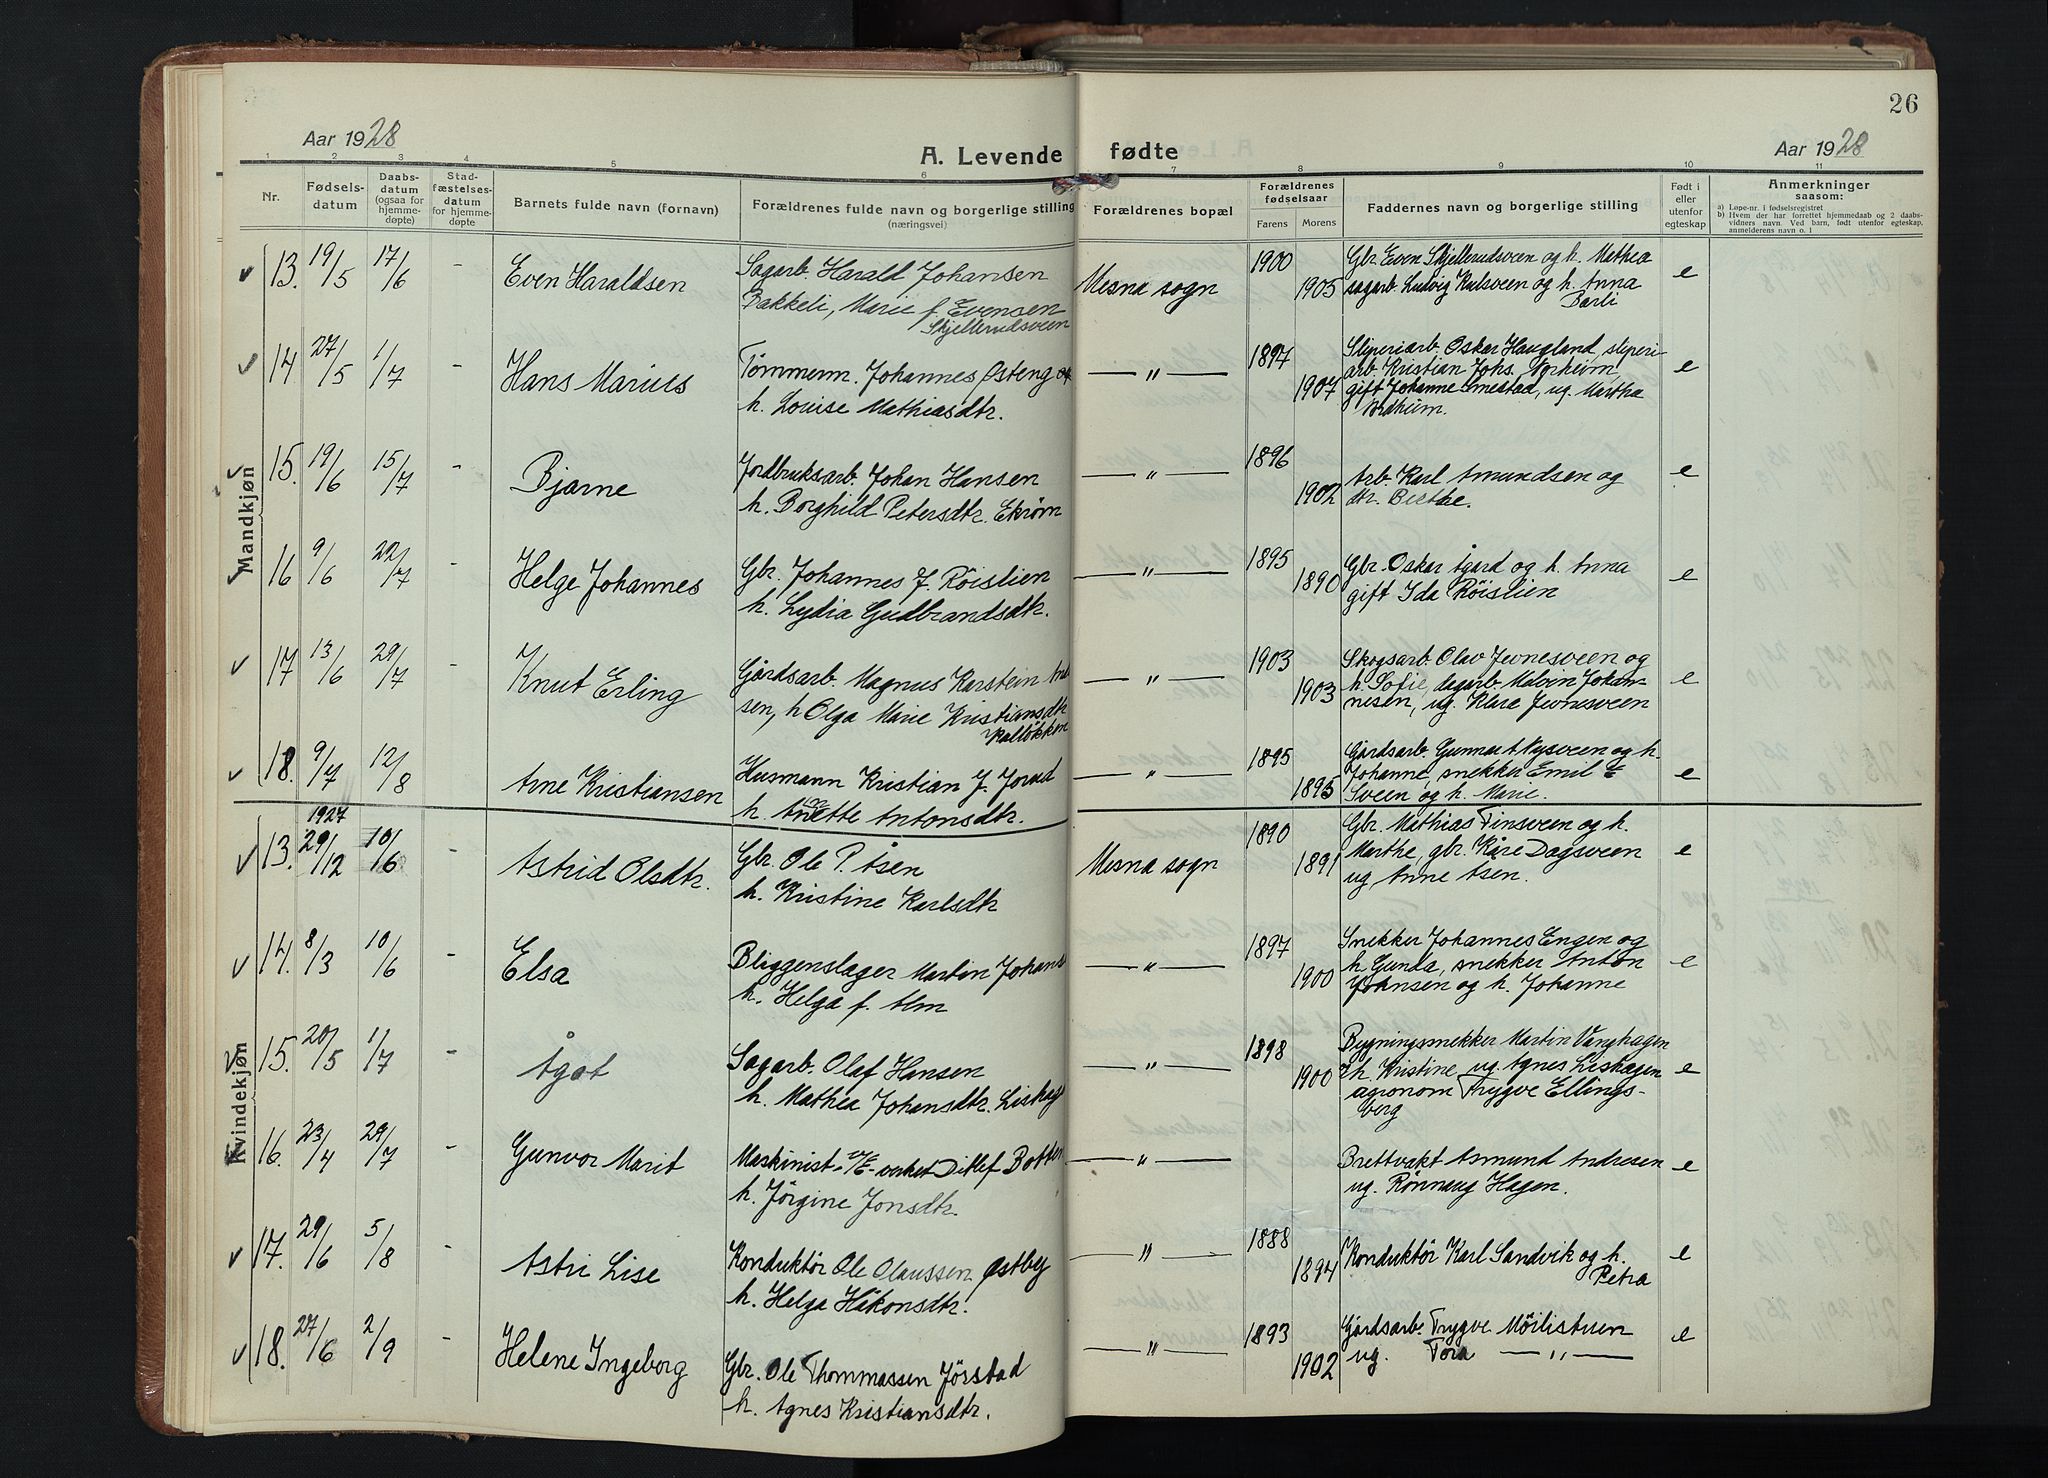 26
Aar 1928
A. Levende fødte
Aar 1928
1 2 3 4 5 6 7 8 9 10 11
Nr.
Fødsels-
datum
Daabs-
datum
(ogsaa for
hjemme-
døpte)
Stad-
fæstelses-
datum
for hjemme-
døpte
Barnets fulde navn (fornavn)
Forældrenes fulde navn og borgerlige stilling
(næringsvei)
Forældrenes bopæl
Forældrenes
fødselsaar
Farens Morens
Faddernes navn og borgerlige stilling
Født i
eller
utenfor
egteskap
Anmerkninger
saasom:
a) Løpe-nr. i fødselsregistret
b) Hvem der har forrettet hjemmedaab og 2 daabs-
vidners navn. Ved barn, født utenfor egteskap,
anmelderens navn o. l
Mandkjøn
13. 19/5 17/6 - Even Haraldsen
Sagarb. Harald Johansen
Bakkeli, Marie f. Evensen
Skjellerudsveen
Mesna sogn 1900 1905
Gbr. Even Skjellerudsveen og h. Mathea
sagarb. Ludvig Kulsveen og h. Anna
Barli
e
14 27/5 1/7 - Hans Marius
Tømmerm. Johannes Østeng og
h. Louise Mathiasdtr.
— " — 1897 1907
Sliperiarb. Oskar Haugland, sliperi-
arb Kristian Johs. Norheim,
gift Johanne Smestad, ug. Martha
Nordheim.
e
15. 19/6 15/7 - Bjarne
Jordbruksarb. Johan Hansen
h. Borghild Petersdtr. Ekrøm
— " — 1896 1902
Arb. Karl Amundsen og
dtr. Berthe.
e
16 9/6 22/7 - Helge Johannes
Gbr. Johannes J. Röislien
h. Lydia Gudbrandsdtr.
— " — 1895 1890
Gbr. Oskar Ågard og h. Anna
gift Ida Röislien
e
17 13/6 29/7 - Knut Erling
Gårdsarb. Magnus Karstein
sen, h Olga Marie Kristiansdtr
— " — 1903 1903
Skogsarb. Olav Jevnesveen og
h. Sofie, dagarb. Malvin Johan-
nesen, ug. Klare Jevnesveen
e
18. 9/7 12/8 - Arne Kristiansen
Husmann Kristian J. Jorud
h. Anette Antonsdtr.
— " — 1895 1895
Gårdsarb. Gunnar A. Nysveen og h.
Johanne, snekker Emil E
Sveen og h. Marie.
e
Kvindekjøn
1927
13. 29/12 10/6 - Astrid Olsdtr.
Gbr. Ole P. Åsen
h. Kristine Karlsdtr
Mesna sogn 1890 1891
Gbr. Mathias Finsveen og h.
Marthe, gbr. Kåre Dagsveen
ug. Anne Åsen.
e
14. 8/3 10/6 - Elsa
Bliggenslager Martin Johans
h. Helga f. Alm
— " — 1897 1900
Snekker Johannes Engen og
h Gunda, snekker Anton
Johnsen og h. Johanne
e
15. 20/5 1/7 - Ågot
Sagarb. Olaf Hansen
h. Mathea Johansdtr. Lishag
— " — 1898 1900
Bygningssnekker Martin Vanghagen
h. Kristine ug. Agnes Lishagen
agronom Trygve Ellings-
berg
e
16. 23/4 29/7 - Gunvor Marit
Maskinist v/E-verket Ditlef Botten
h. Jörgine Jonsdtr.
— " —
Brettvakt Asmund Andresen
ug. Rønnaug Hagen.
e
17. 29/6 5/8 - Astri Lise
Konduktör Ole Olaussen Østby
h. Helga Håkonsdtr.
— " — 1888 1894
Konduktör Karl Sandvik og h.
Petra
e
18. 27/6 2/9 - Helene Ingeborg
Gbr. Ole Thommassen Jørstad
h. Agnes Kristiansdtr.
— " — 1893 1902
Gårdsarb. Trygve Möilistuen
ug. Tora — " —
e